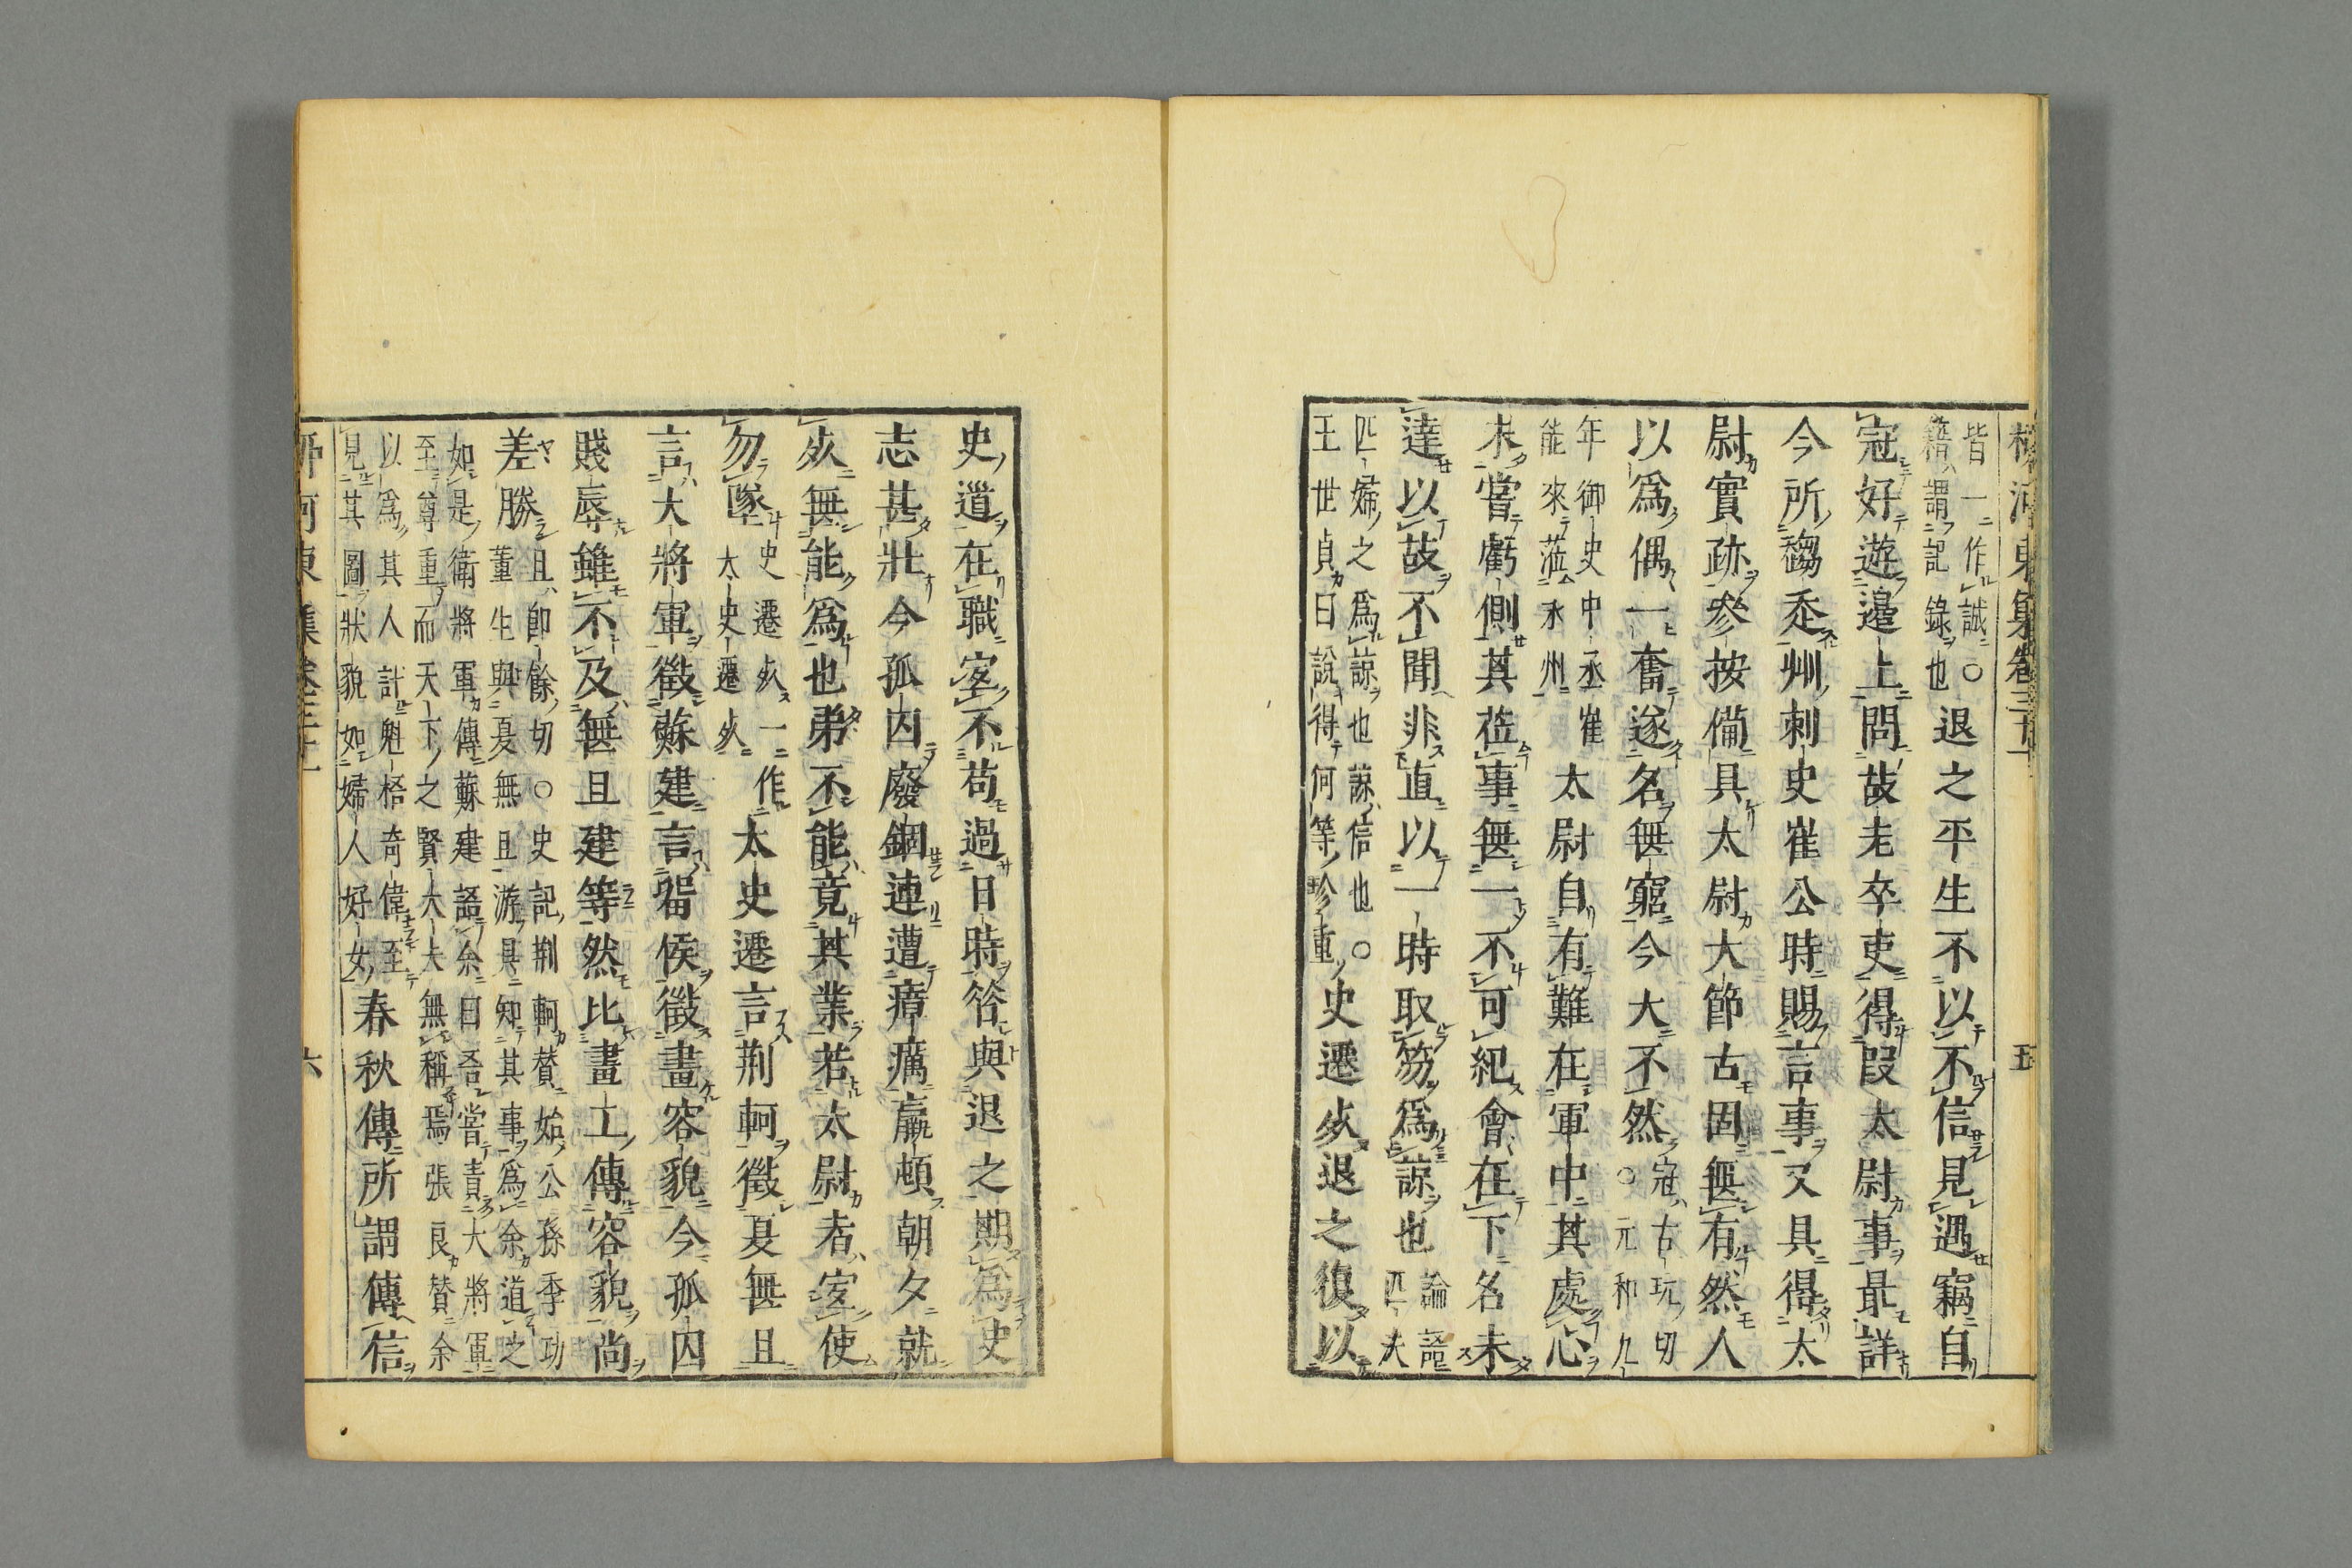 柳河東集卷三十一
五
皆一作誠○
籍謂記錄也
退之平生不以不信見遇竊自
冠好遊邊上問故老卒吏得段太尉事最詳
今所趨走州刺史崔公時賜言事又具得太
尉實跡參按備具太尉大節古固無有然人
以為偶一奮遂名無窮今大不然
冠古玩切
○元和九
年御史中丞崔
能來涖永州
太尉自有難在軍中其處心
未嘗虧側其莅事無一不可紀會在下名未
達以故不聞非直以一時取笏為諒也
論語
匹夫
匹婦之為諒也諒信也○
王世貞曰說得何等珍重
史遷死退之復以
史道在職宜不苟過日時昝與退之期為史
志甚壯今孤囚廢錮連遭瘴癘羸頓朝夕就
死無能為也弟不能竟其業若太尉者宜使
勿墜
史遷死一作
太史遷死
太史遷言荆軻徵夏無且
言大將軍徵蘇建言留侯徵畫容貌今孤囚
賤辱雖不及無且建等然比畫工傳容貌尚
差勝
且即餘切○史記荆軻賛始公孫季功
董生與夏無且游具知其事為余道之
如是衛將軍傳蘇建語余曰吾嘗責大將軍
至尊重而天下之賢大夫無稱焉張良賛余
以為其人計魁梧奇偉至
見其圖狀貌如婦人好女
春秋傳所謂傳信
柳河東集卷三十一
六